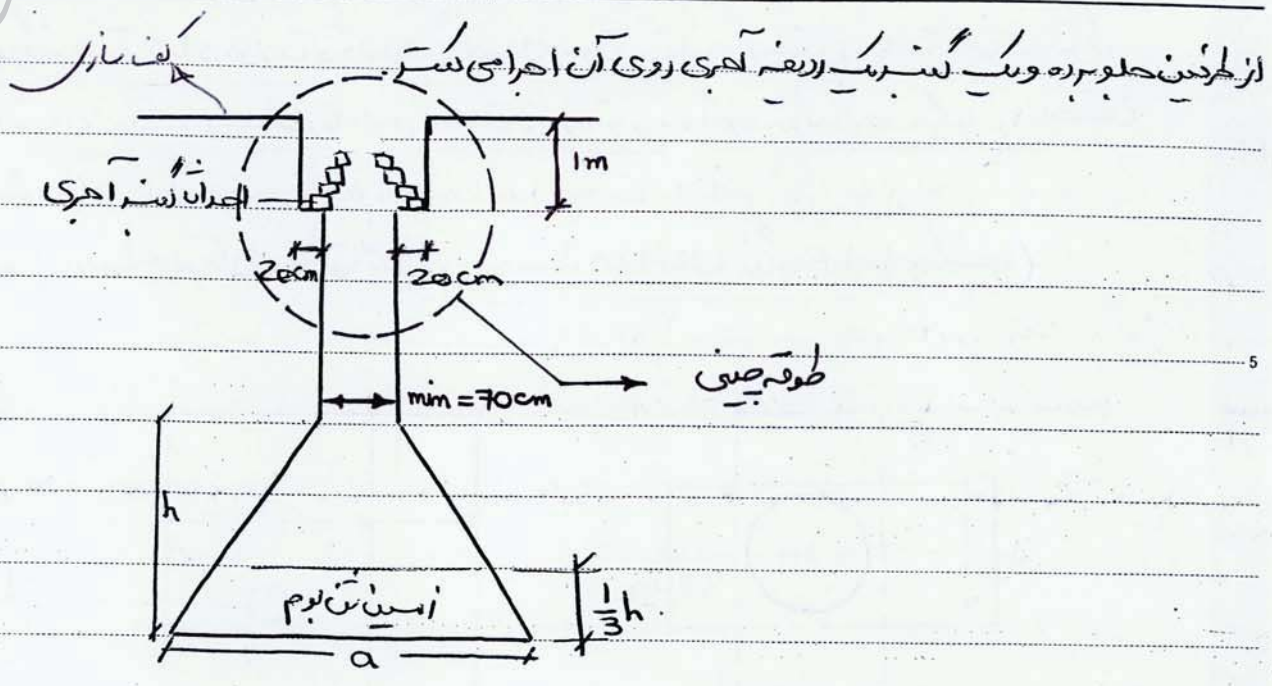 از طرفین جلو برده و یک گنبد یک ردیفه آجری روی آن اجرا می کنند.
کف سازی
1m
احداث گنبد آجری
20cm
20cm
طوقه چینی
5
min = 70cm
h
زمین تن بوم
1/3 h
a